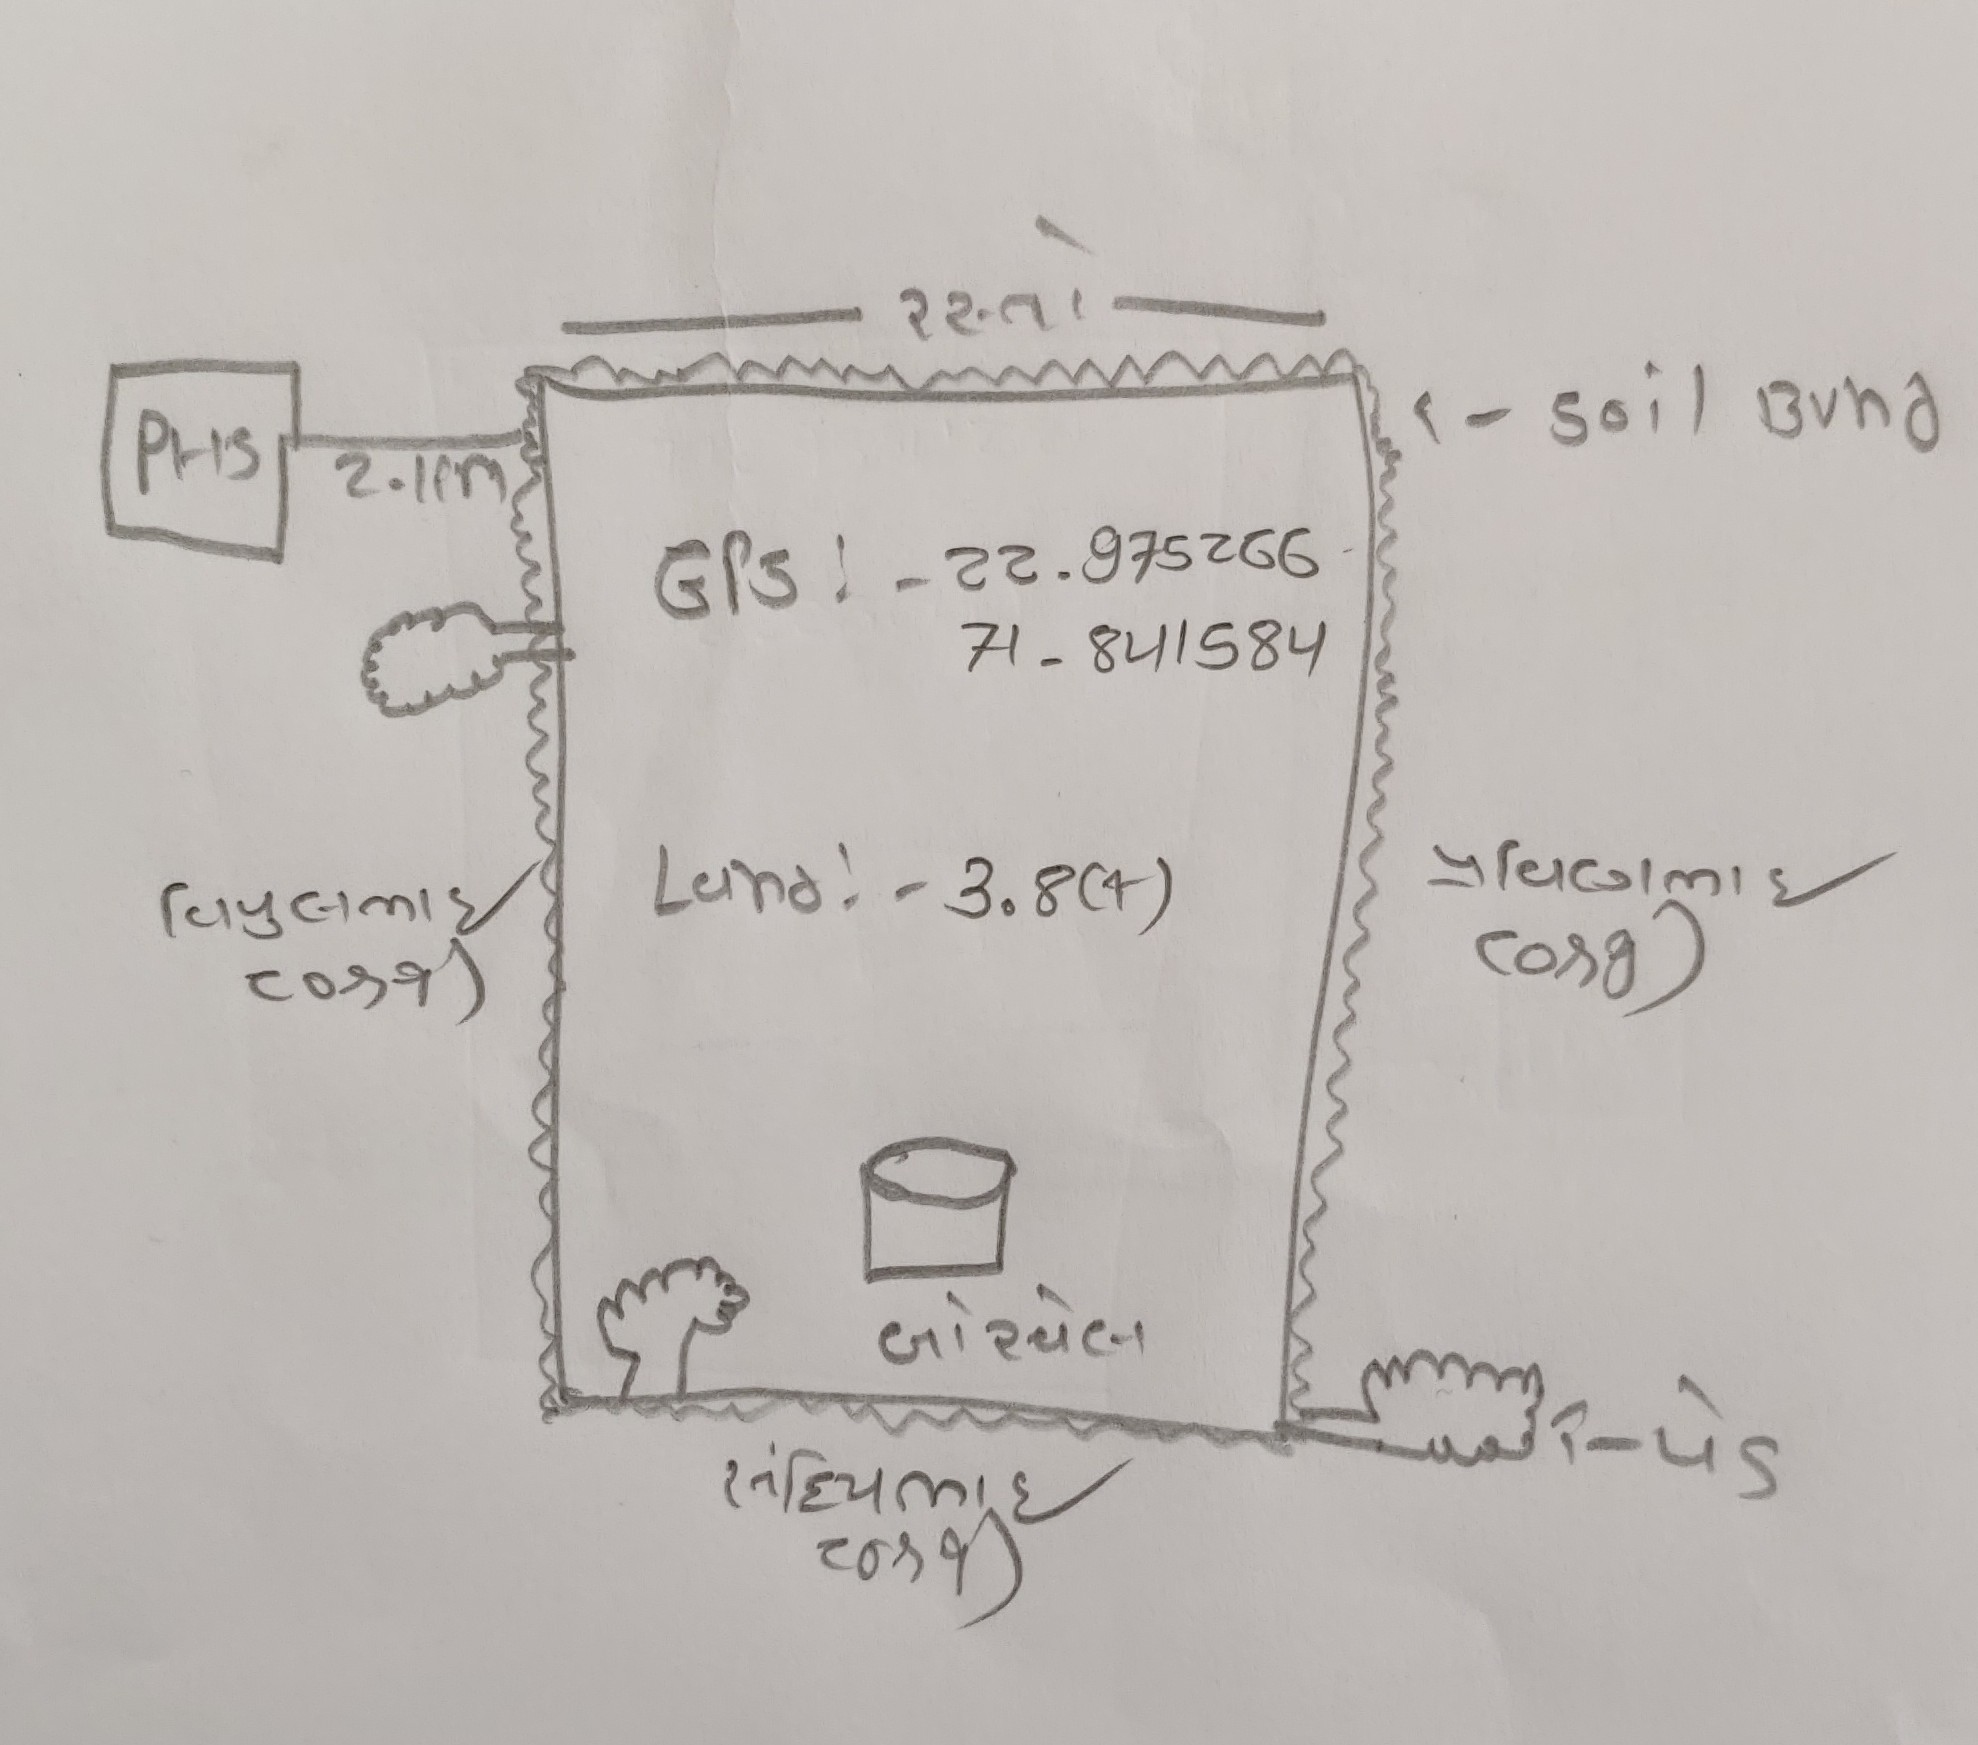 રસ્તો
PHS
2.1km
- Soil Bund
GPS :- 22.975266
71.841584
Land :- 3.8(4)
વિપુલભાઈ
ઠાકર)
પ્રવિણભાઈ
બોરવેલ
- પેડ